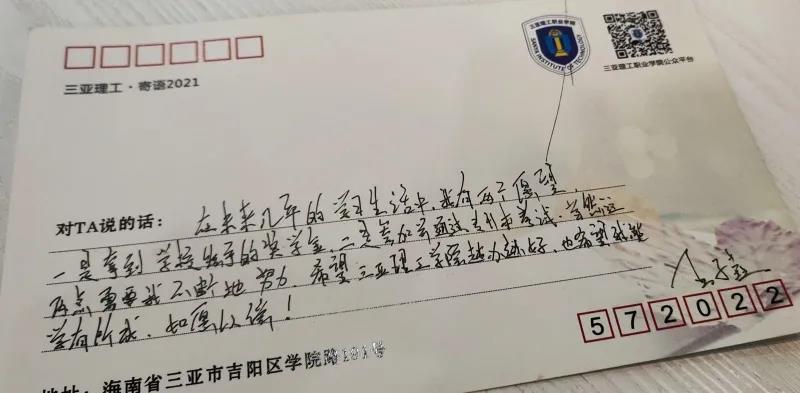 三亚理工职业学院
SANYA INSTITUTE OF TECHNOLOGY
三亚理工职业学院公众平台
三亚理工·寄语2021
对TA说的话：在未来几年的学习生活中，我有两个愿望，
一是拿到学校给予的奖学金，二是参加并通过专升本考试，当然这
两点需要我不断地努力，希望三亚理工学院越办越好，也希望我能
学有所成，如愿以偿！
572022
地址：海南省三亚市吉阳区学院路191号